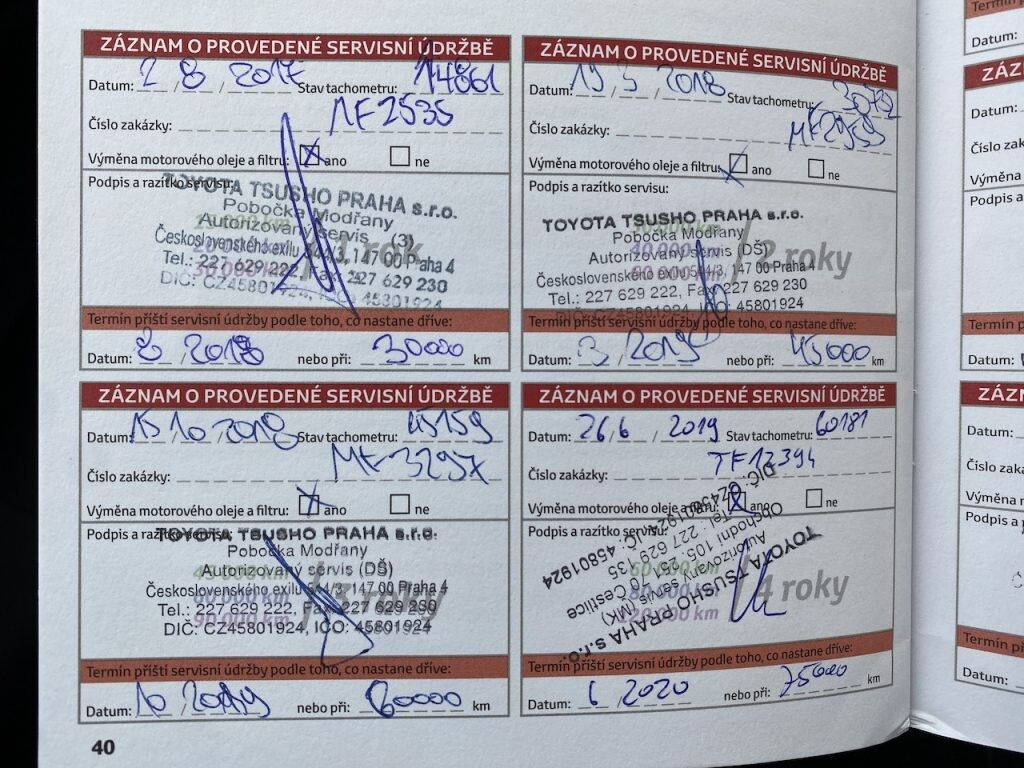 ZÁZNAM O PROVEDENÉ SERVISNÍ ÚDRŽBĚ
Datum: 2 / 8 / 2017 Stav tachometru: 14861
Číslo zakázky: MF2535
Výměna motorového oleje a filtru: ano ne
Podpis a razítko servisu:
TOYOTA TSUSHO PRAHA s.r.o.
Pobočka Modřany
Autorizovaný servis (3)
Československého exilu 544/3, 147 00 Praha 4
Tel.: 227 629 222, Fax: 227 629 230
DIČ: CZ45801924, IČO: 45801924
1 roky
Termín příští servisní údržby podle toho, co nastane dříve:
Datum: 8 / 2018 nebo při: 30000 km
ZÁZNAM O PROVEDENÉ SERVISNÍ ÚDRŽBĚ
Datum: 19 / 3 / 2018 Stav tachometru:
Číslo zakázky:
Výměna motorového oleje a filtru: ano ne
Podpis a razítko servisu:
TOYOTA TSUSHO PRAHA s.r.o.
Pobočka Modřany
Autorizovaný servis (DŠ)
Československého exilu 544/3, 147 00 Praha 4
Tel.: 227 629 222, Fax: 227 629 230
DIČ: CZ45801924, IČO: 45801924
/ 2 roky
Termín příští servisní údržby podle toho, co nastane dříve:
Datum: 3 / 2019 nebo při: 45000 km
ZÁZNAM O PROVEDENÉ SERVISNÍ ÚDRŽBĚ
Datum: 15 / 10 / 2018 Stav tachometru: 45159
Číslo zakázky: MF3297
Výměna motorového oleje a filtru: ano ne
Podpis a razítko servisu:
TOYOTA TSUSHO PRAHA s.r.o.
Pobočka Modřany
Autorizovaný servis (DŠ)
Československého exilu 544/3, 147 00 Praha 4
Tel.: 227 629 222, Fax: 227 629 230
DIČ: CZ45801924, IČO: 45801924
45 000 km
60 000 km
90 000 km
/ 3 roky
Termín příští servisní údržby podle toho, co nastane dříve:
Datum: 10 / 2019 nebo při: 60000 km
ZÁZNAM O PROVEDENÉ SERVISNÍ ÚDRŽBĚ
Datum: 26 / 6 / 2019 Stav tachometru: 60181
Číslo zakázky: TF12394
Výměna motorového oleje a filtru: ano ne
Podpis a razítko servisu:
TOYOTA TSUSHO PRAHA s.r.o.
Autorizovaný servis (MK)
Obchodní Čestlice
DIČ: CZ45801924 IČO: 45801924
/ 4 roky
Termín příští servisní údržby podle toho, co nastane dříve:
Datum: 6 / 2020 nebo při: 75000 km
40
Datum:
Datum:
Číslo
Výměna
Podpis a
Termín
Datum:
Datum:
Číslo
Výměna
Podpis a
Termín
Datum: